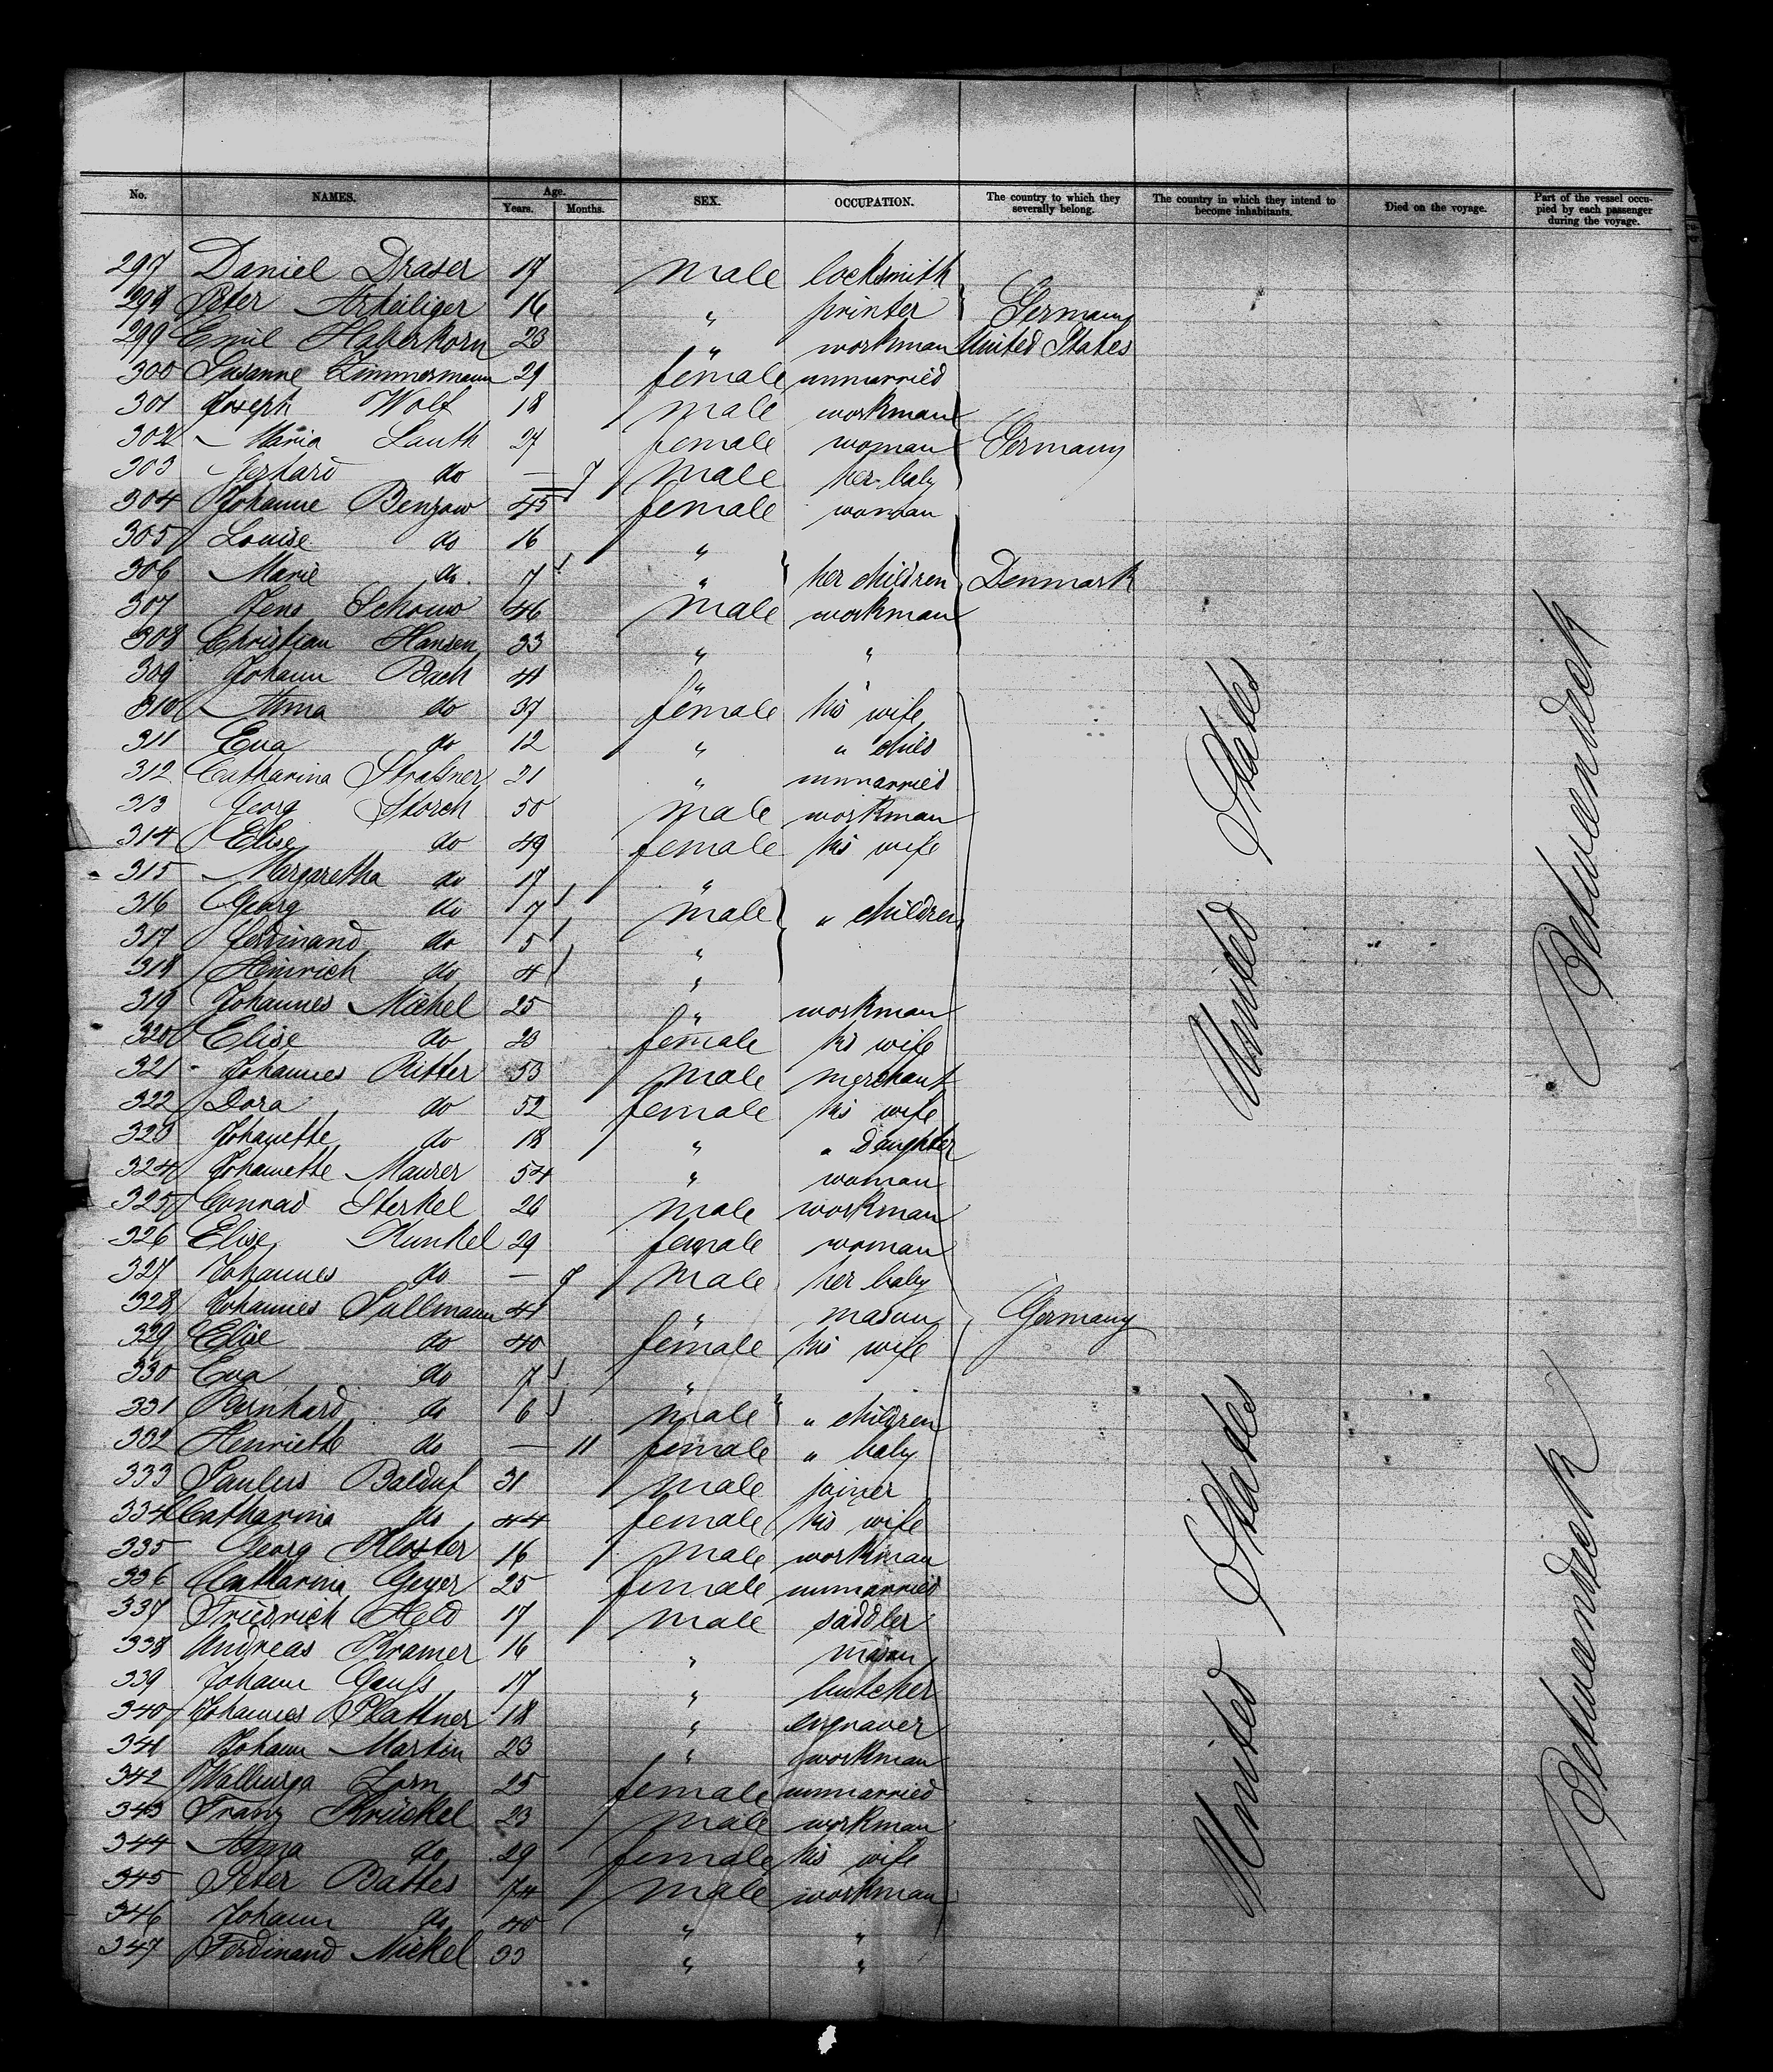 No. NAMES. Age. Years. Months. SEX. OCCUPATION. The country to which they severally belong. The country in which they intend to become inhabitants. Died on the voyage. Part of the vessel occupied by each passenger during the voyage.
297 Daniel Draser 17 male locksmith
298 Peter Arheiliger 16 " printer Germany
299 Emil Haberkorn 23 " workman United States
300 Susanne Zimmermann 29 female unmarried
301 Joseph Wolf 18 male workman
302 Maria Lauth 27 female woman Germany
303 Gerhard do — 7 male her baby
304 Johanne Benzow 45 female woman
305 Louise do 16 "
306 Marie do 7 " her children Denmark
307 Jens Schouw 46 male workman
308 Christian Hansen 33 " "
309 Johann Bach 41 " "
310 Anna do 37 female his wife
311 Eva do 12 " " child
312 Catharina Straßner 21 " unmarried
313 Georg Storch 50 male workman
314 Elise do 49 female his wife
315 Margaretha do 17 "
316 Georg do 7 male " children
317 Ferdinand do 5 "
318 Heinrich do 4 "
319 Johannes Michel 25 " workman
320 Elise do 23 female his wife
321 Johannes Ritter 53 male merchant
322 Dora do 52 female his wife
323 Johanette do 18 " " daughter
324 Johanette Maurer 54 " woman
325 Conrad Sterkel 26 male workman
326 Elise Kunkel 29 female woman
327 Johannes do — 7 male her baby
328 Johannes Sullmann 41 " mason Germany
329 Elise do 40 female his wife
330 Eva do 7 "
331 Reinhard do 6 male " children
332 Henriette do — 11 female " baby
333 Paulus Balduf 31 male joiner
334 Catharina do 44 female his wife
335 Georg Kloster 16 male workman
336 Catharina Geyer 25 female unmarried
337 Friedrich Held 17 male saddler
338 Andreas Kramer 16 " mason
339 Johann Gauß 17 " butcher
340 Johannes Plattner 18 " engraver
341 Johann Martin 23 " workman
342 Walburga Zorn 25 female unmarried
343 Franz Krückel 23 male workman
344 Anna do 29 female his wife
345 Peter Battes 74 male workman
346 Johann do 40 " "
347 Ferdinand Nickel 33 " "
United States
Betweendeck
United States
Betweendeck